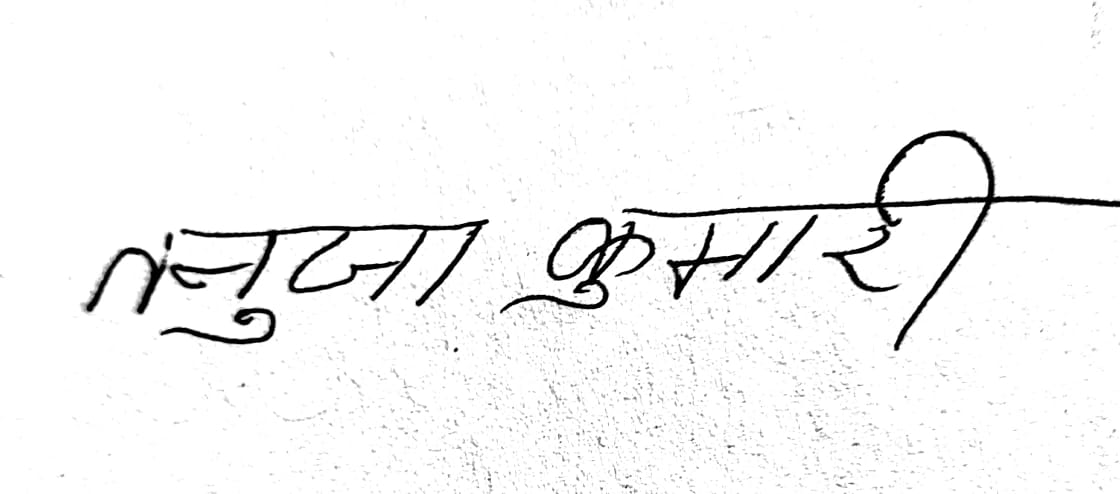 तंनुजा कुमारी